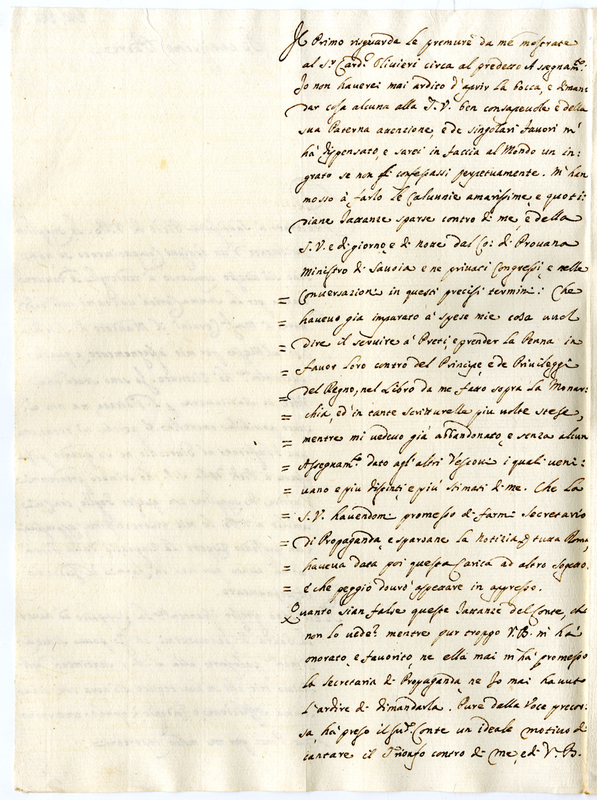 Il Primo risguarda le premure da me mostrate
al Sr. Card.e Olivieri circa al predetto Assegnam.to
Io non haverei mai ardito d'aprir la bocca, e diman=
dar cosa alcuna alla S. V. ben consapevole è della
sua Paterna attenzione, e de singolari favori m'
ha dispensato, e sarei in faccia al Mondo un in=
grato se non confessassi perpetuamente. M'han
mosso à farlo le Calunnie amarissime, e quoti=
diane Iattanze sparse contro di me, e della
S. V. e di giorno, e di notte dal Co: di Provana
Ministro di Savoia e ne privati Congressi, e nelle
= Conversazioni in questi precisi termini: Che
= havevo già imparato à spese mie cosa vuol
= dire il servire à Preti, e prender la Penna in
= favor loro contro del Principe, e de Privileggi
= del Regno, nel Libro da me fatto sopra la Monar=
= chia, ed in tante scritturelle più volte stese,
= mentre mi vedevo già abbandonato, e senza alcun
= Assegnam.to dato agl'altri Vescovi i quali veni=
= vano e più distinti, e più stimati di me. Che la
= S. V. havendomi promesso di farmi Secretario
= Di Propaganda, e sparsane la notizia p tutta Roma,
= haveva data poi questa Carica ad altro sogetto.
= e che peggio dovrò aspettare in appresso.
Quanto sian false queste Iattanze del Conte, chi
non lo vede? mentre pur troppo V. B. m'ha
onorato, e favorito, ne ella mai m'ha promesso
la Secretaria di Propaganda, ne Io mai havuto
l'ardire di dimandarla. Pure dalla Voce precor=
sa, ha preso il sud.o Conte un ideale motivo di
cantare il Trionfo contro di me, e di V. B.